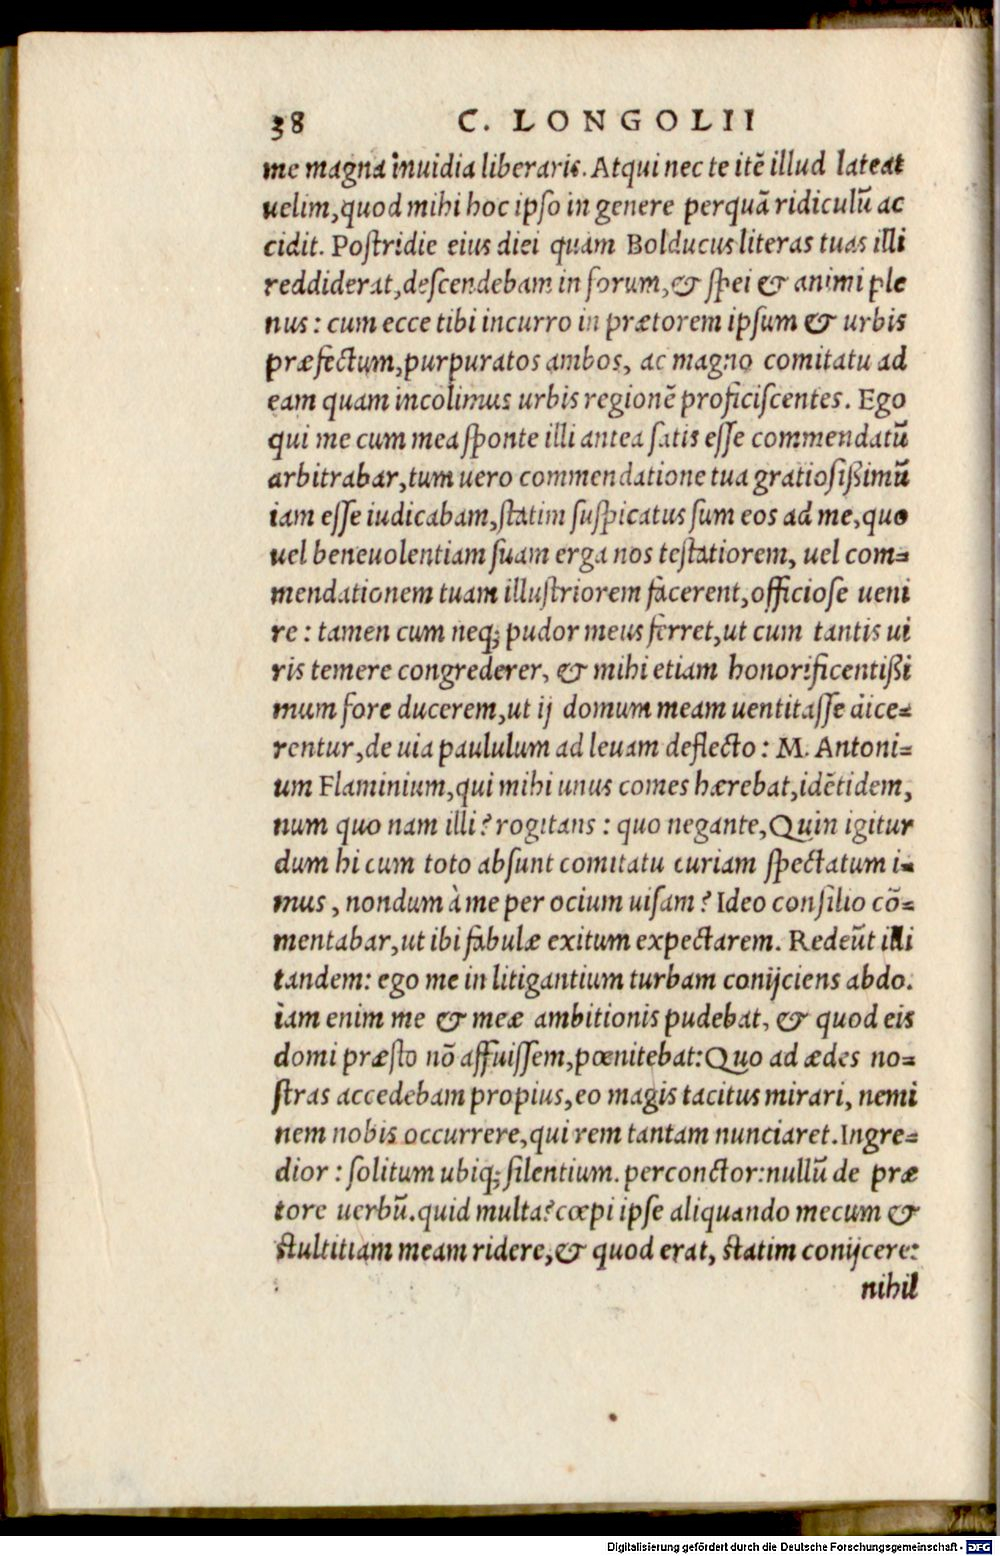 38 C. LONGOLII
me magna inuidia liberaris. Atqui nec te itē illud lateat
uelim, quod mihi hoc ipso in genere perquā ridiculū ac
cidit. Postridie eius diei quam Bolducus literas tuas illi
reddiderat, descendebam in forum, & spei & animi ple
nus: cum ecce tibi incurro in prætorem ipsum & urbis
præfectum, purpuratos ambos, ac magno comitatu ad
eam quam incolimus urbis regionē proficiscentes. Ego
qui me cum mea sponte illi antea satis esse commendatū
arbitrabar, tum uero commendatione tua gratiosißimū
iam esse iudicabam, statim suspicatus sum eos ad me, quo
uel beneuolentiam suam erga nos testatiorem, uel com-
mendationem tuam illustriorem facerent, officiose ueni
re: tamen cum neq; pudor meus ferret, ut cum tantis ui
ris temere congrederer, & mihi etiam honorificentißi
mum fore ducerem, ut ij domum meam uentitasse dice-
rentur, de uia paululum ad leuam deflecto: M. Antoni-
um Flaminium, qui mihi unus comes hærebat, idētidem,
num quo nam illi? rogitans: quo negante, Quin igitur
dum hi cum toto absunt comitatu curiam spectatum i-
mus, nondum à me per ocium uisam? Ideo consilio cō-
mentabar, ut ibi fabulæ exitum expectarem. Redeūt illi
tandem: ego me in litigantium turbam conijciens abdo.
iam enim me & meæ ambitionis pudebat, & quod eis
domi præsto nō affuissem, pœnitebat: Quo ad ædes no-
stras accedebam propius, eo magis tacitus mirari, nemi
nem nobis occurrere, qui rem tantam nunciaret. Ingre-
dior: solitum ubiq; silentium. perconctor: nullū de præ
tore uerbū. quid multa? cœpi ipse aliquando mecum &
stultitiam meam ridere, & quod erat, statim conijcere:
nihil
Digitalisierung gefördert durch die Deutsche Forschungsgemeinschaft - DFG